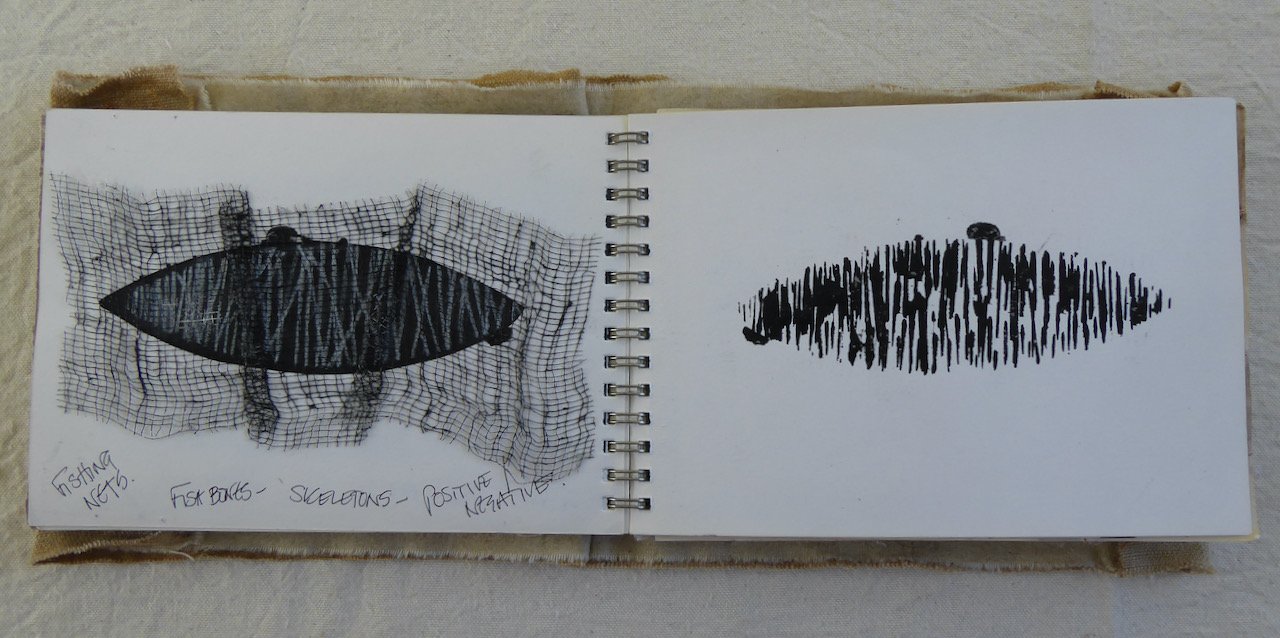 FISHING
NETS.
FISH BONES – SKELETONS – POSITIVE
NEGATIVES.